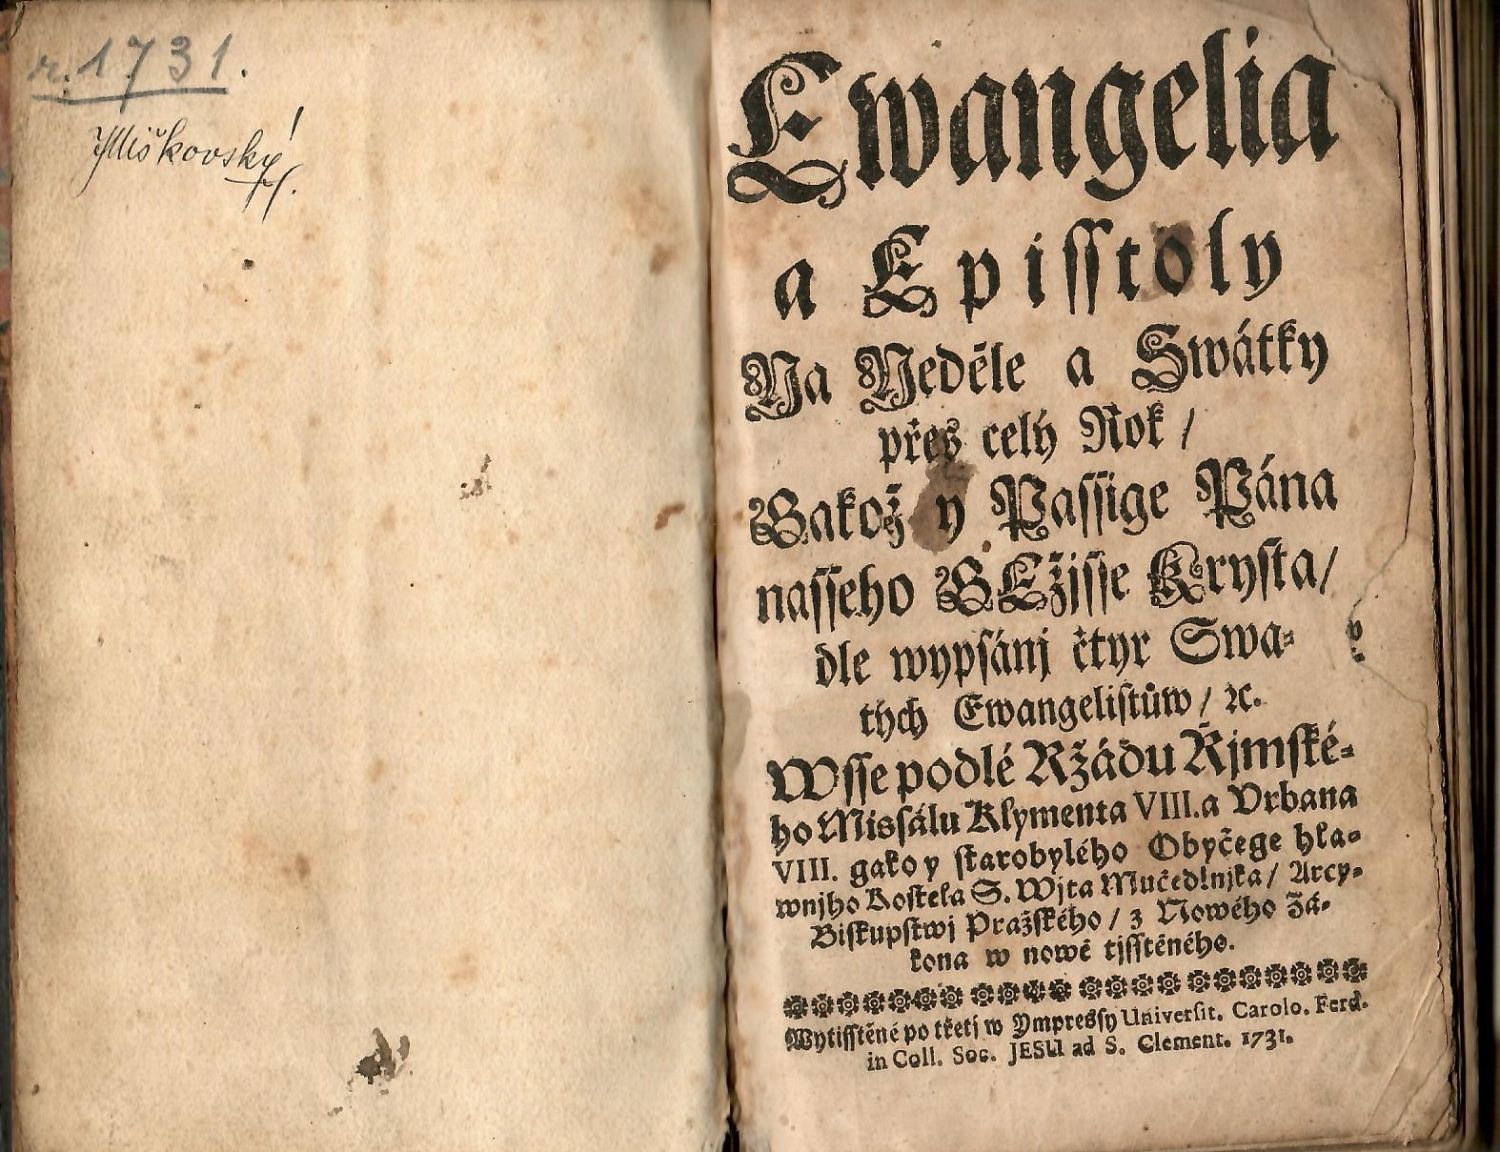 r. 1731.
Miškovský
Ewangelia
a Episstoly
Na Neděle a Swátky
přes celý Rok /
Gakož y Passige Pána
nasseho GEžjsse Krysta /
dle wypsánj čtyr Swa-
tých Ewangelistůw / ꝛc.
Wsse podlé Ržádu Ržjmské-
ho Missálu Klymenta VIII. a Vrbana
VIII. gako y starobylého Obyčege hla-
wnjho Kostela S. Wjta Mučedlnjka / Arcy-
Biskupstwj Pražského / z Nowého Zá-
kona w nowě tjsstěného.
Wytisstěné po třetj w Ympressy Universit. Carolo. Ferd.
in Coll. Soc. JESU ad S. Clement. 1731.